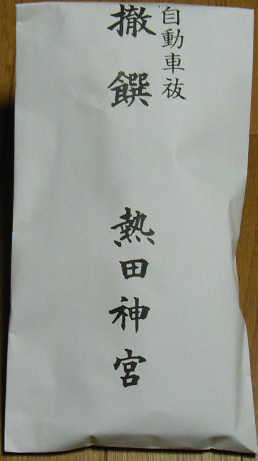 自動車祓
撤饌
熱田神宮